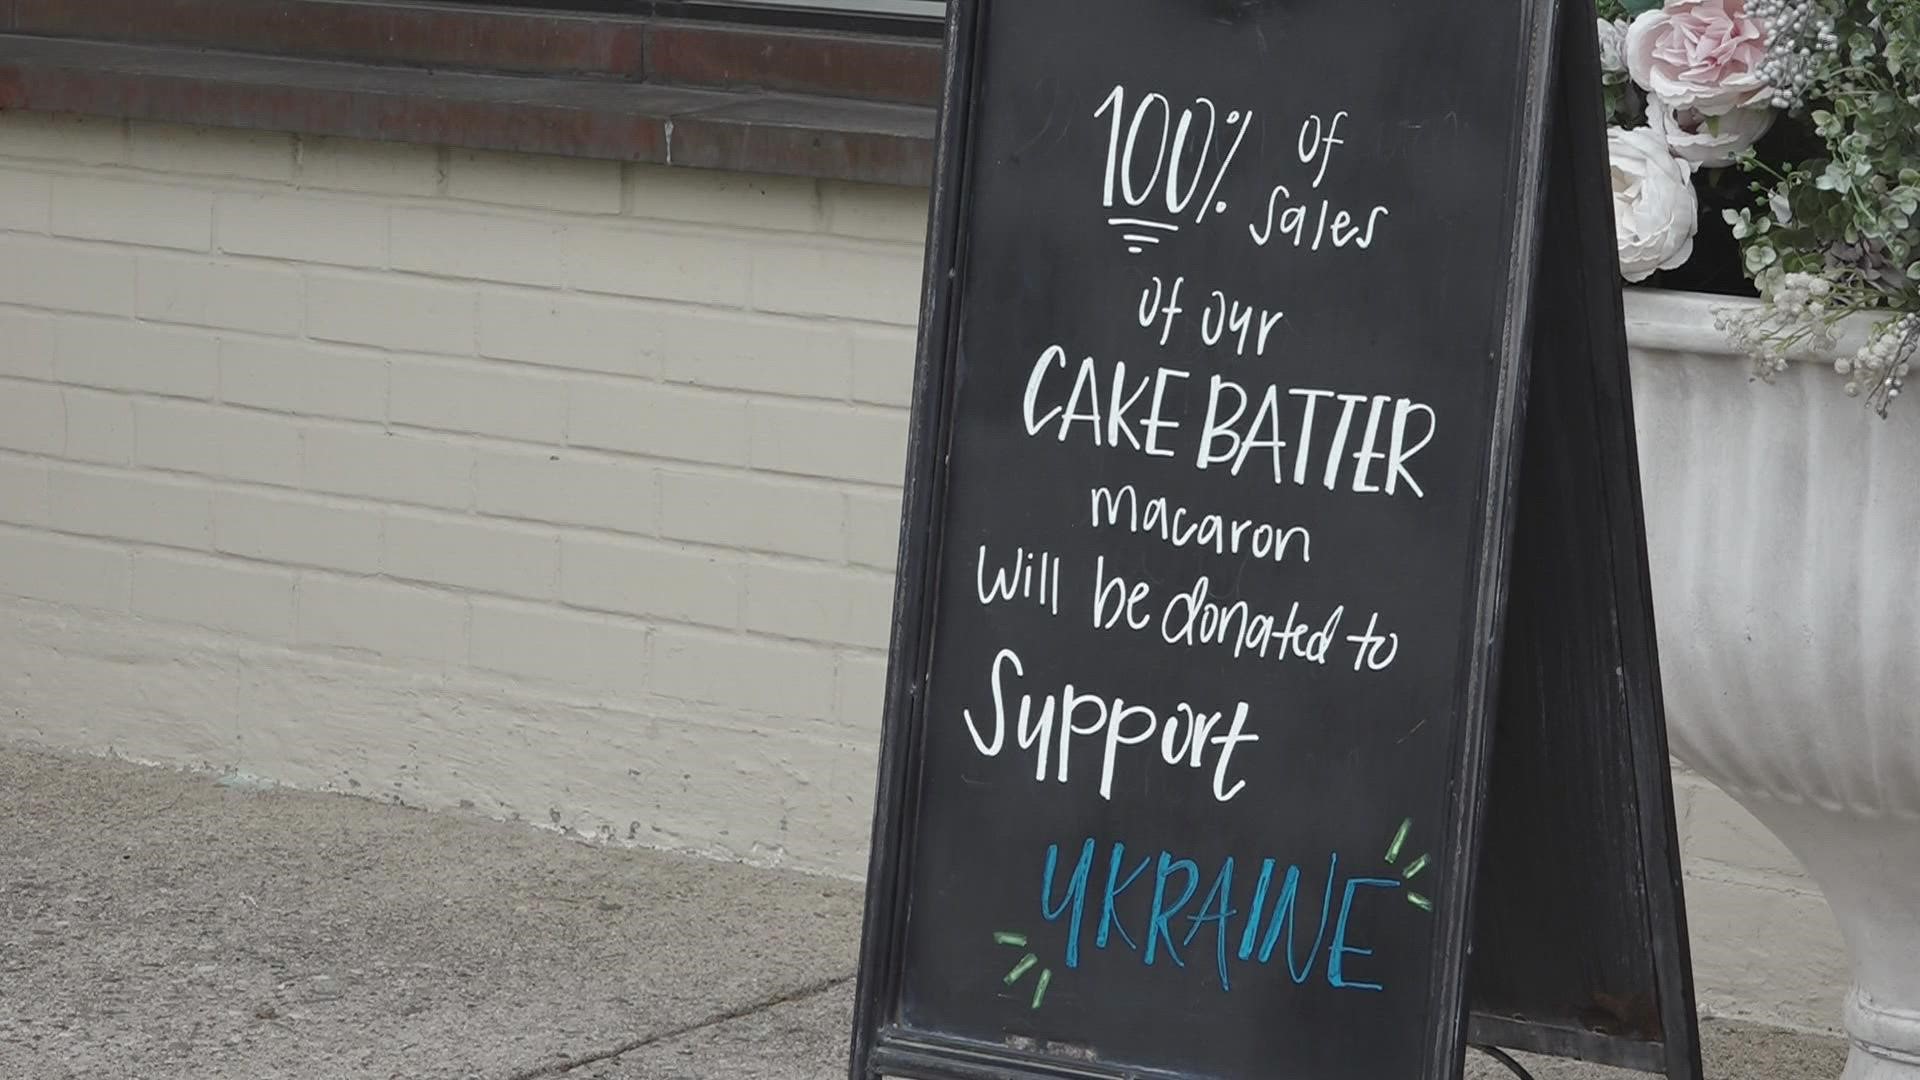 100% of
sales
of our
CAKE BATTER
macaron
will be donated to
Support
UKRAINE